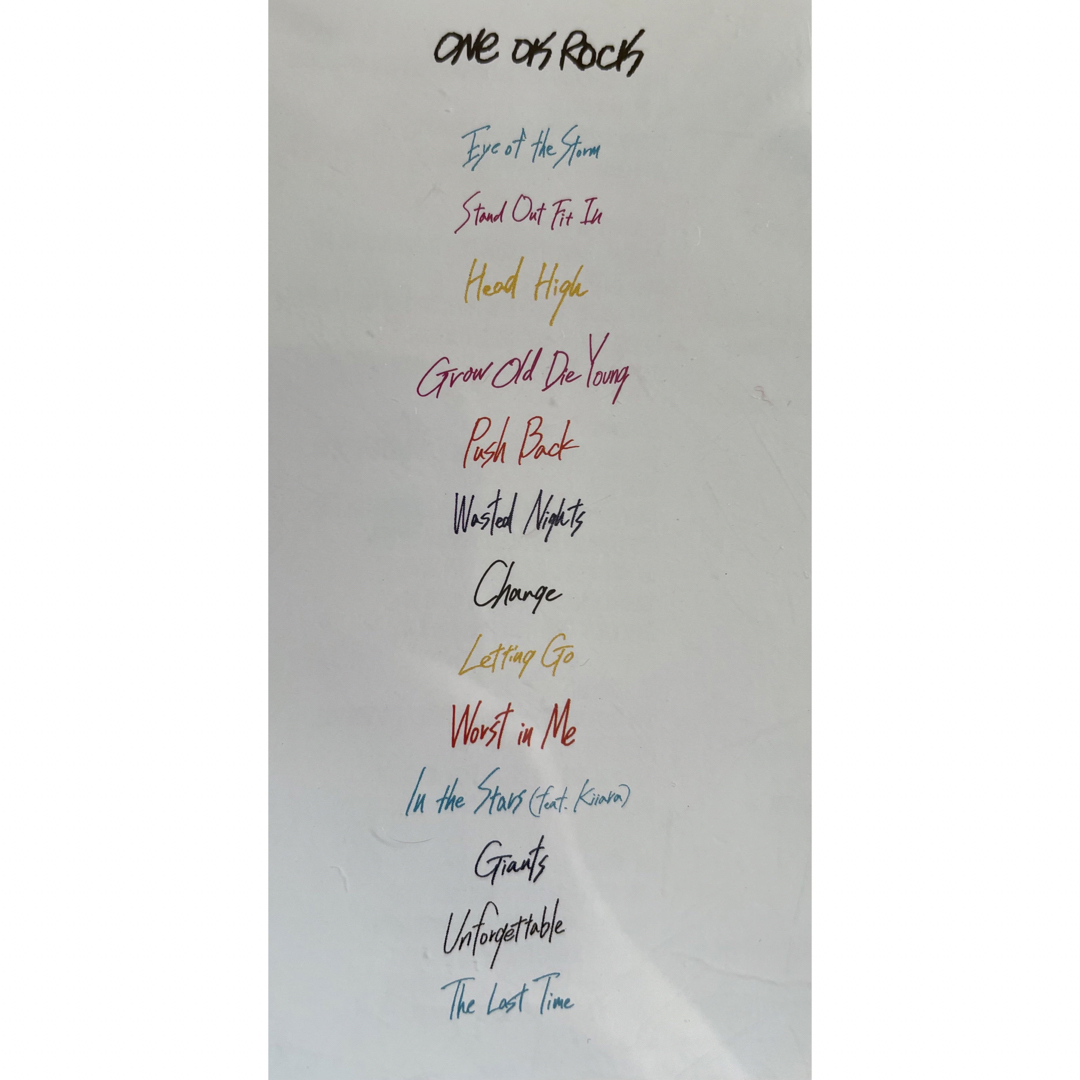 ONE OK ROCK
Eye of the Storm
Stand Out Fit In
Head High
Grow Old Die Young
Push Back
Wasted Nights
Change
Letting Go
Worst in Me
In the Stars (feat. Kiiara)
Giants
Unforgettable
The Last Time